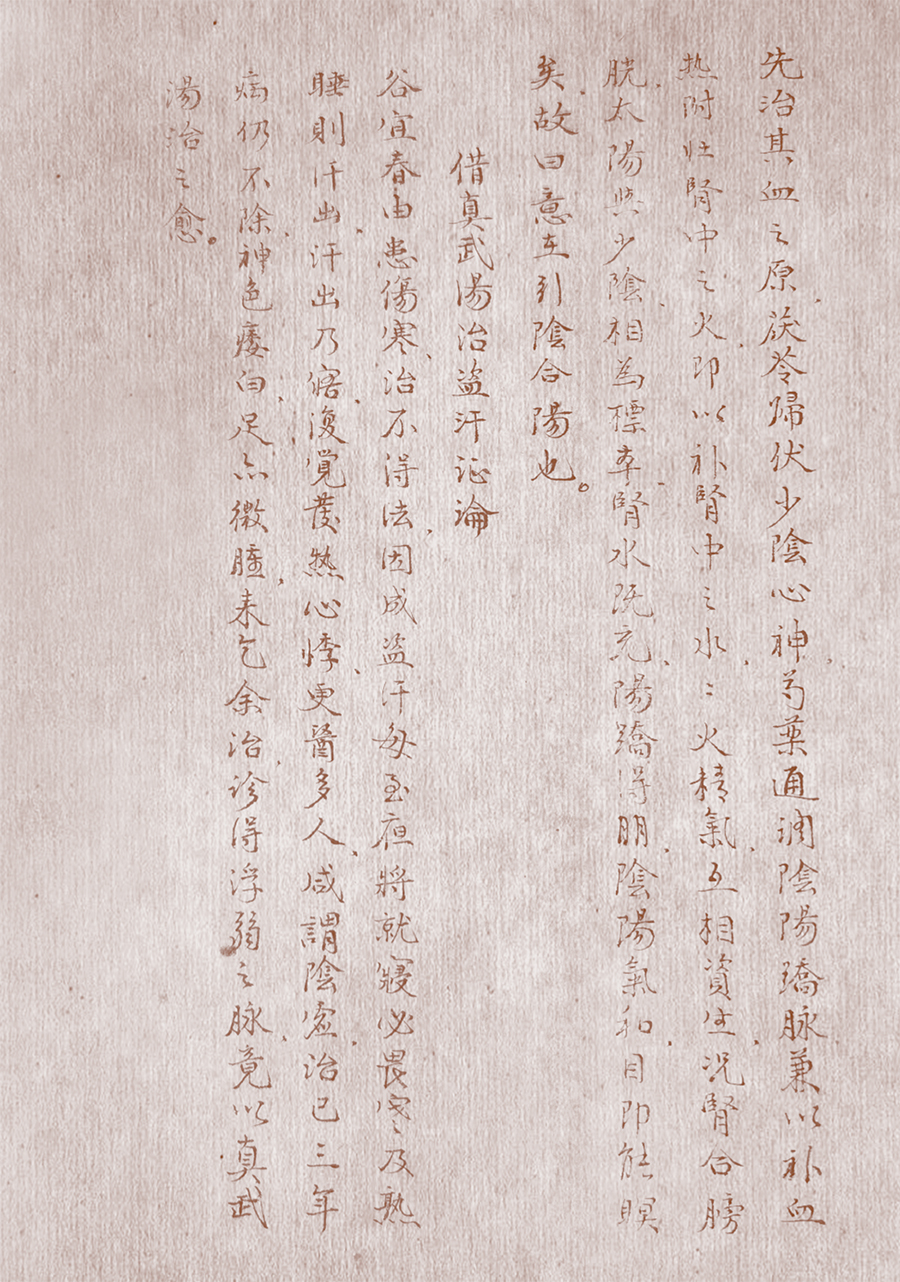 先治其血之原、茯苓歸伏少陰心神、芍藥通調陰陽蹻脉兼以补血
热附壮腎中之火、即以补腎中之水、〻火精氣、互相資生、况腎合膀
胱、太陽與少陰、相為標本、腎水既充、陽蹻得朋、陰陽氣和目即能瞑
矣、故曰意在引陰合陽也。
借真武湯治盗汗证論
谷宜春由患傷寒、治不得法、因成盗汗每至夜將就寢必畏寒〻及熟
睡則汗出、汗出乃寤、復覺發热心悸、更醫多人、咸謂陰虚、治已三年
病仍不除、神色痿白、足亦微腫、来乞余治、診得浮弱之脉、竟以真武
湯治之愈。